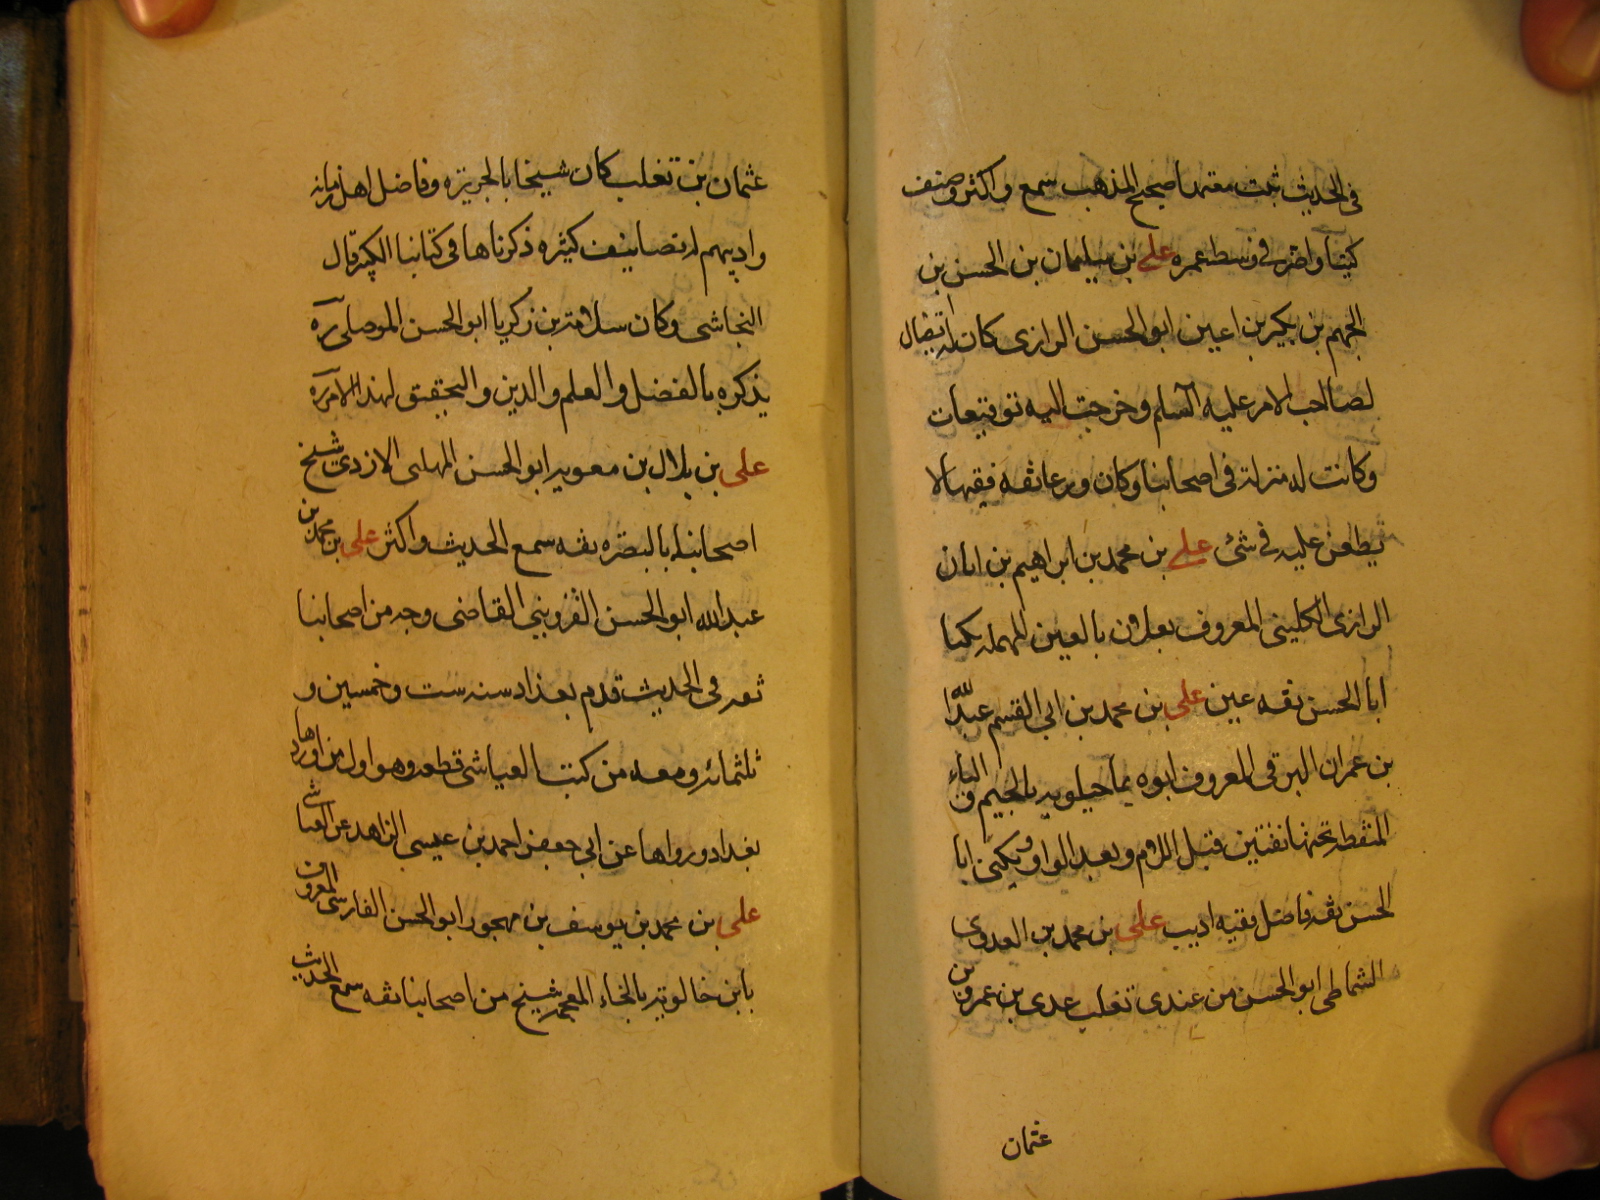 فى الحديث ثبت معتمدا صحيح المذهب سمع واكثر وصنف
كتبا واضر فى وسط عمره على بن سليمان بن الحسن بن
الجهم بن بكير بن اعين ابو الحسن الرازى كان له اتصال
لصاحب الامر عليه السلم وخرجت اليه توقيعات
وكانت له منزلة فى اصحابنا وكان ورعا ثقه فقيها لا
يطعن عليه فى شئ على بن محمد بن ابراهيم بن ابان
الرازى الكلينى المعروف بعلان بالعين المهمله يكنا
ابا الحسن ثقه عين على بن محمد بن ابى القسم عبدالله
بن عمران البرقى المعروف ابوه بماجيلويه بالجيم والياء
المنقطه تحتها نقتين قبل اللام وبعد الواو ويكنى ابا
الحسن ثقه فاضل فقيه اديب على بن محمد بن العدوى
الشماطى ابو الحسن من عندى تغلب عدى بن عمرو بن
عثمان
عثمان بن تغلب كان شيخنا بالجزيره وفاضل اهل زمانه
واديبهم له تصانيف كثيره ذكرناها فى كتابنا الكبير قال
النجاشى وكان سلامة بن زكريا ابو الحسن الموصلى ره
يذكره بالفضل والعلم والدين والتحقيق لهذا الامر ره
على بن بلال بن معويه ابو الحسن المهلبى الازدى شيخ
اصحابنا بالبصره ثقه سمع الحديث واكثر على بن محمد بن
عبدالله ابو الحسن القزوينى القاضى وجه من اصحابنا
ثقه فى الحديث قدم بغداد سنه ست وخمسين و
ثلثمائه ومعه من كتب العياشى قطعه وهو اول من اوردها
بغداد ورواها عن ابى جعفر احمد بن عيسى الزاهد عن العياشى
على بن محمد بن يوسف بن مهجور ابو الحسن الفارسى المعروف
بابن خالويه بالخاء المعجمه شيخ من اصحابنا ثقه سمع الحديث